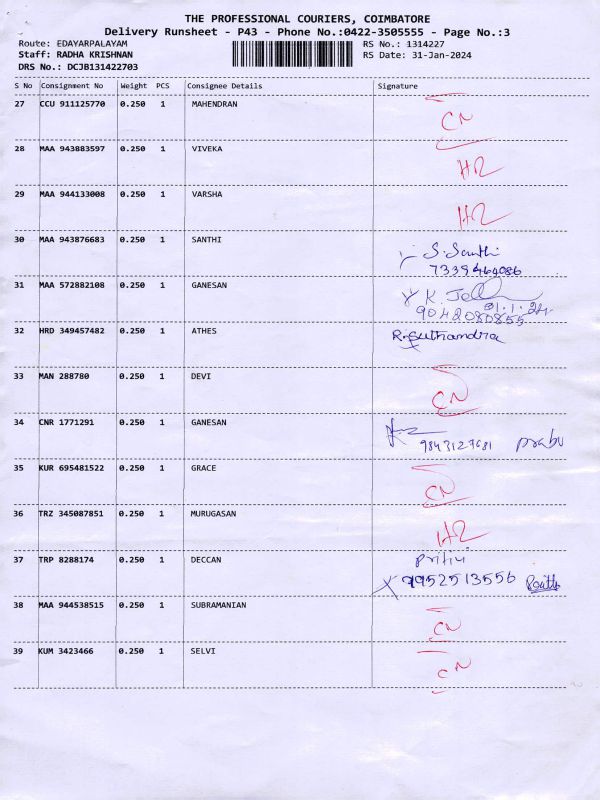 THE PROFESSIONAL COURIERS, COIMBATORE
Delivery Runsheet - P43 - Phone No.:0422-3505555 - Page No.:3
Route: EDAYARPALAYAM
RS No.: 1314227
Staff: RADHA KRISHNAN
RS Date: 31-Jan-2024
DRS No.: DCJB131422703
S No Consignment No Weight PCS Consignee Details Signature
27 CCU 911125770 0.250 1 MAHENDRAN CN
28 MAA 943883597 0.250 1 VIVEKA
29 MAA 944133008 0.250 1 VARSHA
30 MAA 943876683 0.250 1 SANTHI S. Santhi
7339464086
31 MAA 572882108 0.250 1 GANESAN K.
9042080855
32 HRD 349457482 0.250 1 ATHES R. Suthandra
33 MAN 288780 0.250 1 DEVI CN
34 CNR 1771291 0.250 1 GANESAN 9843127681 prabu
35 KUR 695481522 0.250 1 GRACE CN
36 TRZ 345087851 0.250 1 MURUGASAN
37 TRP 8288174 0.250 1 DECCAN
9952513556
38 MAA 944538515 0.250 1 SUBRAMANIAN CN
39 KUM 3423466 0.250 1 SELVI CN